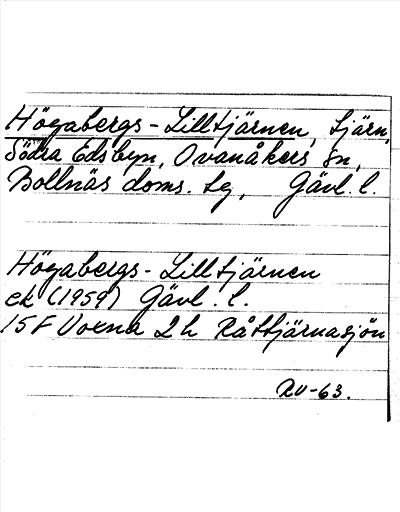 Högabergs-Lilltjärnen, tjärn,
Södra Edsbyn, Ovanåkers sn,
Bollnäs doms. tg, Gävl. l.
Högabergs-Lilltjärnen
ek (1959) Gävl. l.
15F Voxna 2h Råttjärnasjön
RU-63.